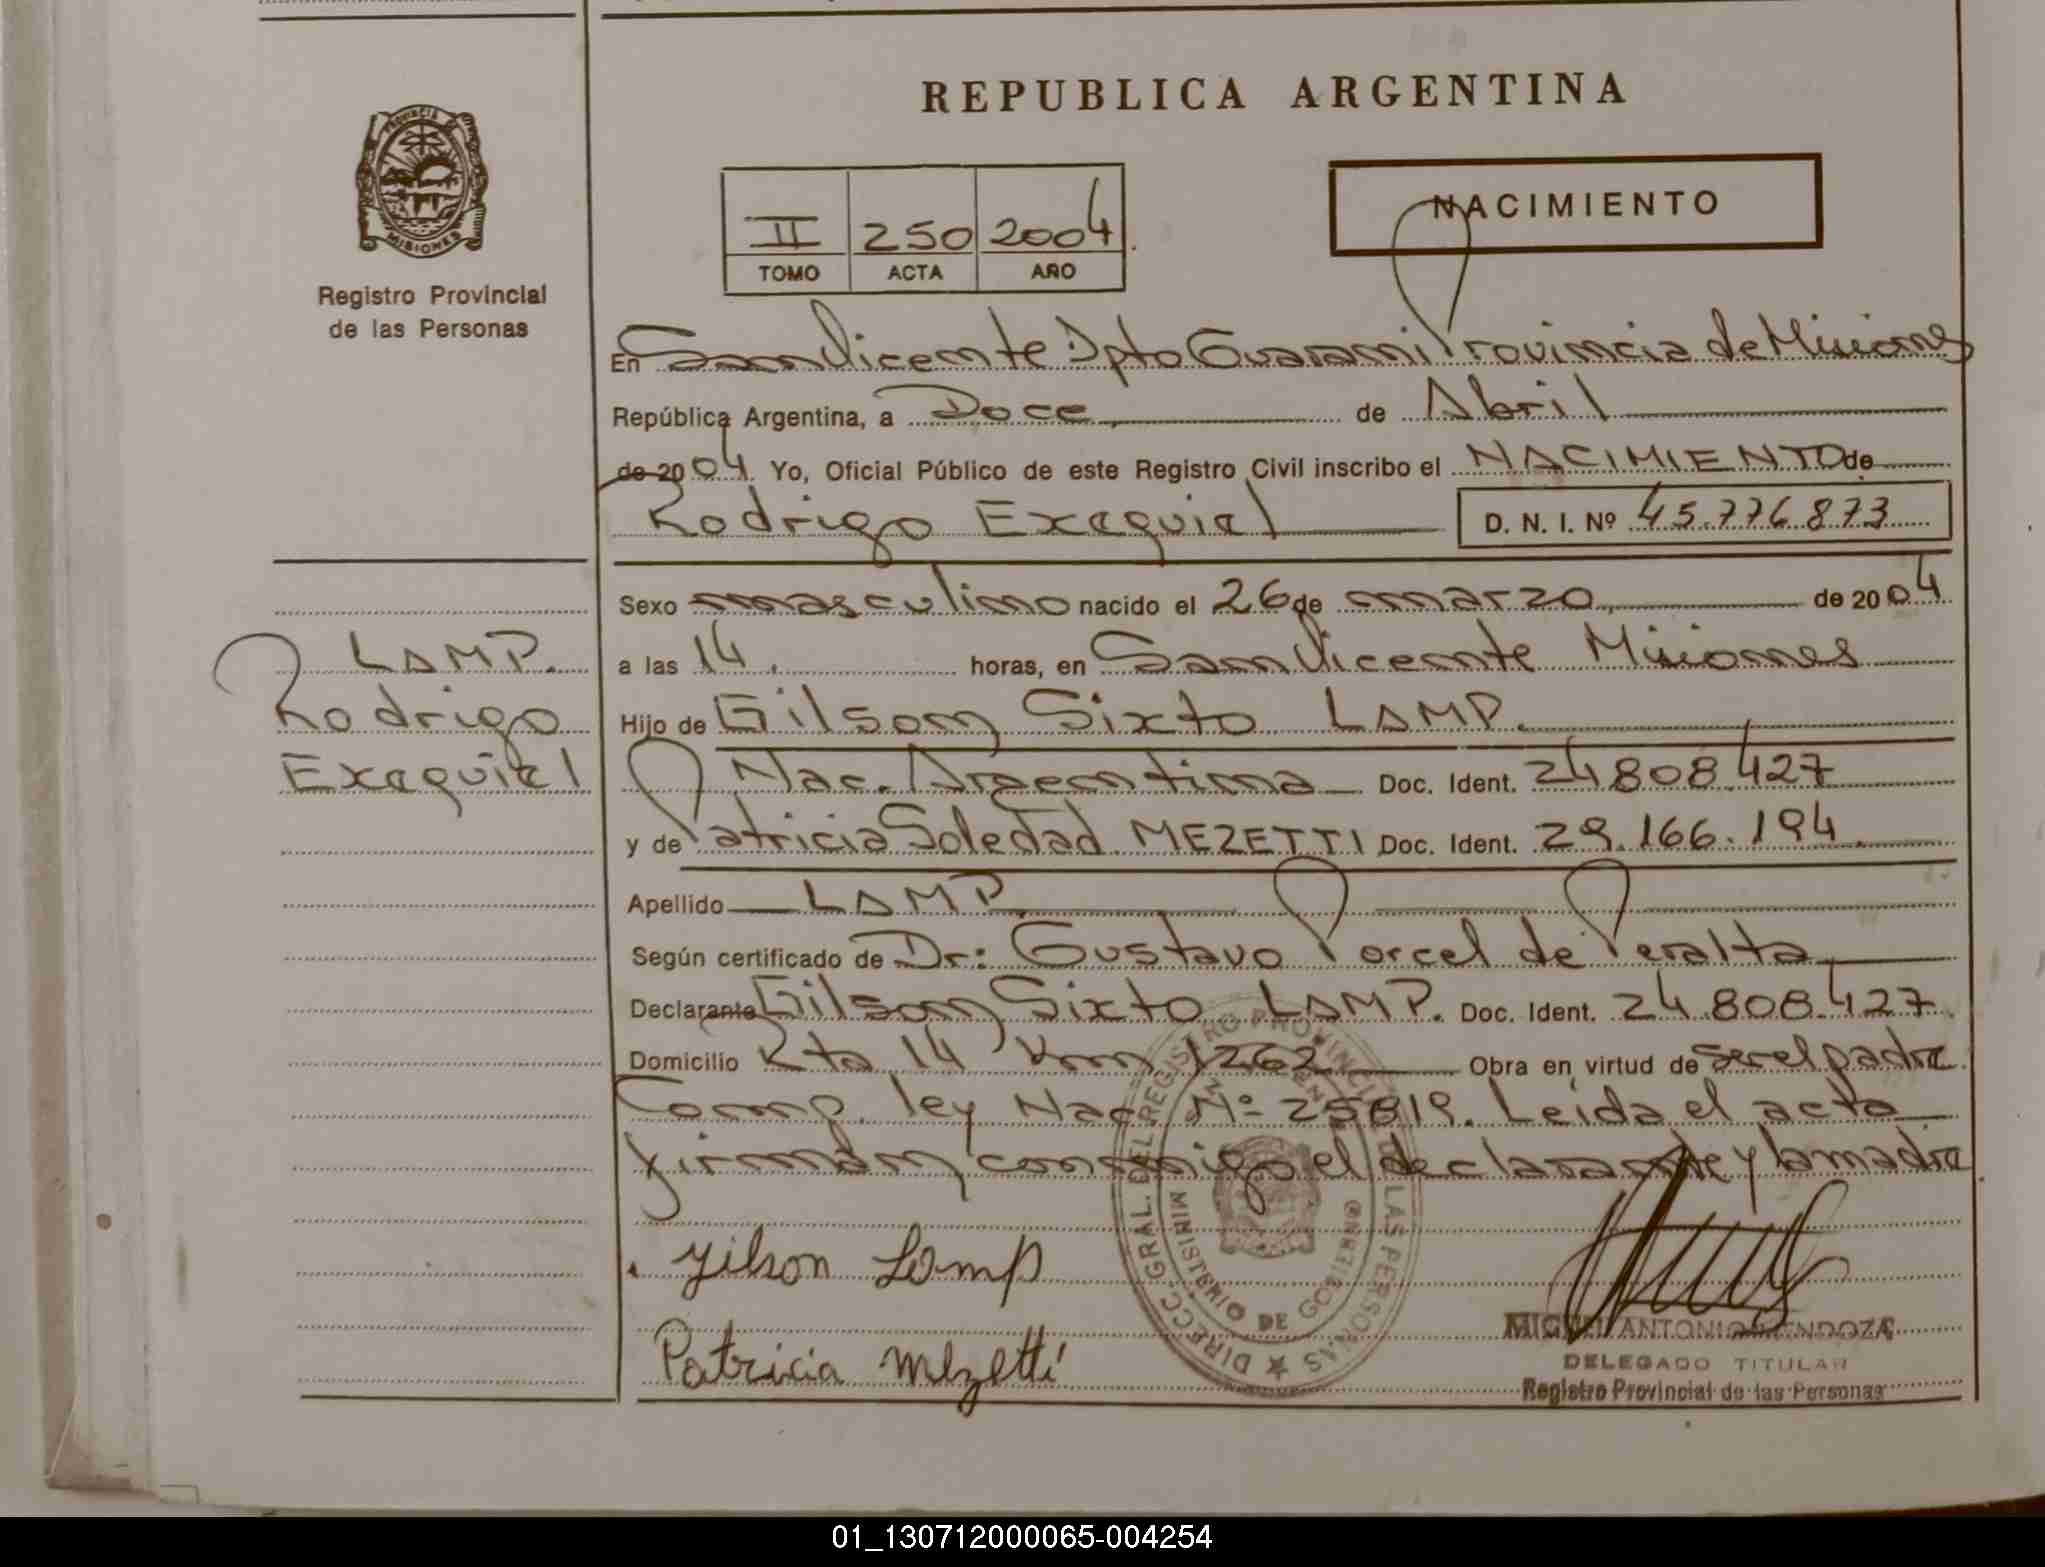 REPUBLICA ARGENTINA
PROVINCIA DE
MISIONES
Registro Provincial
de las Personas
II 250 2004
TOMO ACTA AÑO
NACIMIENTO
En San Vicente Dpto Guarani Provincia de Misiones
República Argentina, a Doce de Abril
de 2004 Yo, Oficial Público de este Registro Civil inscribo el NACIMIENTO de
Rodrigo Exequiel D. N. I. Nº 45.776.873
Sexo masculino nacido el 26 de marzo de 2004
a las 14. horas, en San Vicente Misiones
Hijo de Gilson Sixto LAMP.
Nac. Argentina Doc. Ident. 24.808.427
y de Patricia Soledad MEZETTI Doc. Ident. 29.166.194
Apellido LAMP
Según certificado de Dr: Gustavo Porcel de Peralta
Declarante Gilson Sixto LAMP. Doc. Ident. 24.808.427
Domicilio Rta 14 Km 1262 Obra en virtud de ser el padre
Comp. ley Nac Nº 25819. Leida el acta
firman conmigo el declarante y la madre
LAMP.
Rodrigo
Exequiel
Gilson Lamp
Patricia Mezetti
DIRECC. GRAL. DEL REGISTRO PROVINCIAL DE LAS PERSONAS
MINISTERIO DE GOBIERNO
MIGUEL ANTONIO MENDOZA
DELEGADO TITULAR
Registro Provincial de las Personas
01_130712000065-004254